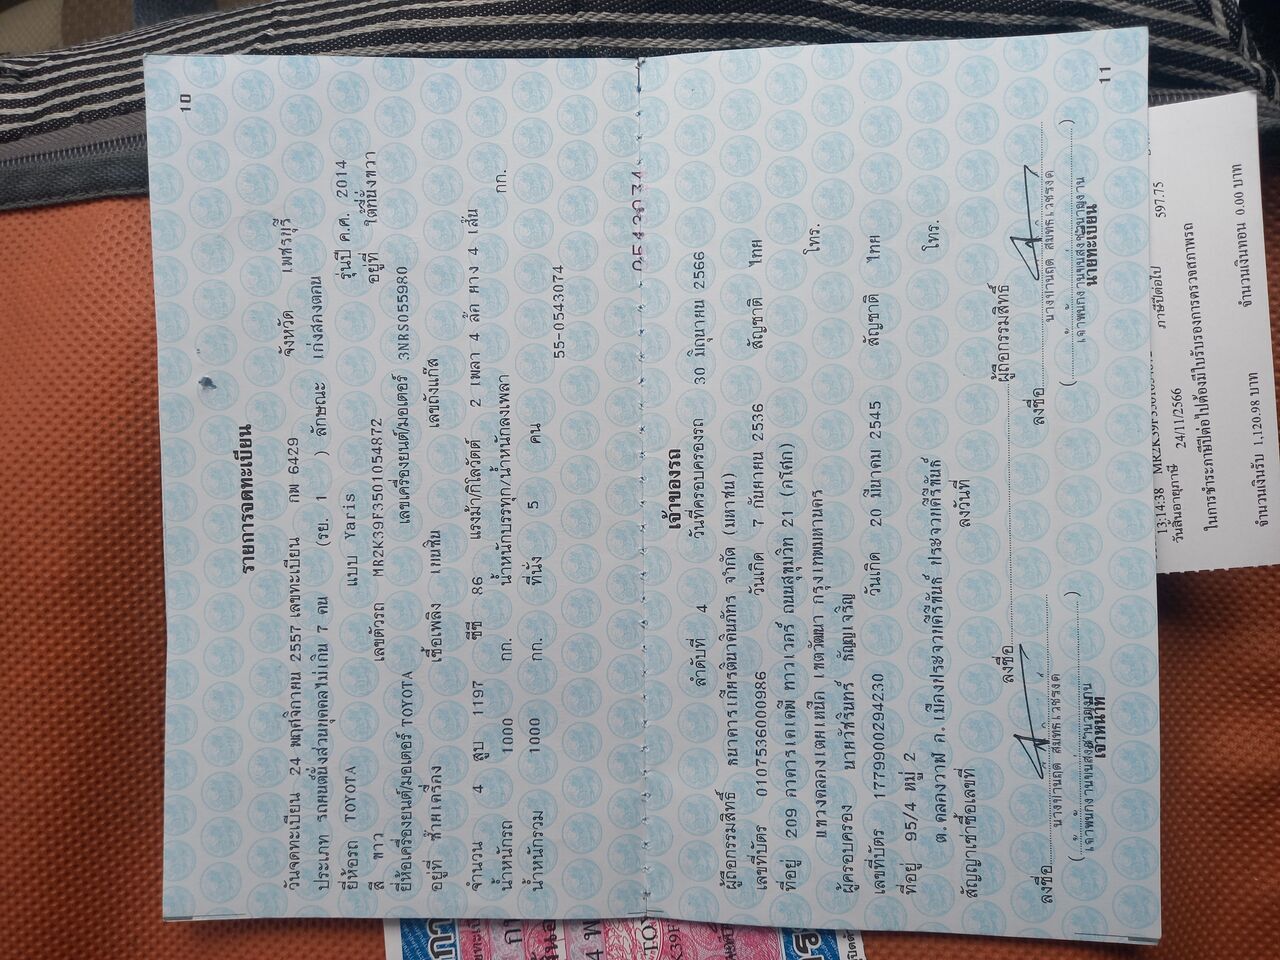 10
รายการจดทะเบียน
วันจดทะเบียน 24 พฤศจิกายน 2557 เลขทะเบียน กพ 6429 จังหวัด เพชรบุรี
ประเภท รถยนต์นั่งส่วนบุคคลไม่เกิน 7 คน (รย. 1 ) ลักษณะ เก๋งสองตอน
ยี่ห้อรถ TOYOTA แบบ Yaris รุ่นปี ค.ศ. 2014
สี ขาว เลขตัวรถ MR2K39F3501054872 อยู่ที่ ใต้ที่นั่งขวา
ยี่ห้อเครื่องยนต์/มอเตอร์ TOYOTA เลขเครื่องยนต์/มอเตอร์ 3NRS055980
อยู่ที่ ซ้ายเครื่อง เชื้อเพลิง เบนซิน เลขถังแก๊ส
จำนวน 4 สูบ 1197 ซีซี 86 แรงม้า/กิโลวัตต์ 2 เพลา 4 ล้อ ยาง 4 เส้น
น้ำหนักรถ 1000 กก. น้ำหนักบรรทุก/น้ำหนักลงเพลา กก.
น้ำหนักรวม 1000 กก. ที่นั่ง 5 คน
55-0543074
เจ้าของรถ
ลำดับที่ 4 วันที่ครอบครองรถ 30 มิถุนายน 2566
ผู้ถือกรรมสิทธิ์ ธนาคารเกียรตินาคินภัทร จำกัด (มหาชน)
เลขที่บัตร 0107536000986 วันเกิด 7 กันยายน 2536 สัญชาติ ไทย
ที่อยู่ 209 อาคารเคเคพี ทาวเวอร์ ถนนสุขุมวิท 21 (อโศก)
แขวงคลองเตยเหนือ เขตวัฒนา กรุงเทพมหานคร โทร.
ผู้ครอบครอง นายวัชรินทร์ ธัญเจริญ
เลขที่บัตร 1779900294230 วันเกิด 20 มีนาคม 2545 สัญชาติ ไทย
ที่อยู่ 95/4 หมู่ 2
ต.คลองวาฬ อ.เมืองประจวบคีรีขันธ์ ประจวบคีรีขันธ์ โทร.
สัญญาเช่าซื้อเลขที่ ลงวันที่
ลงชื่อ ผู้ถือกรรมสิทธิ์
ลงชื่อ ลงชื่อ
เจ้าหน้าที่ นายทะเบียน
11
13:14:38 ภาษีปีต่อไป 597.75
วันสิ้นอายุภาษี 24/11/2566
ในการชำระภาษีปีต่อไปต้องมีใบรับรองการตรวจสภาพรถ
จำนวนเงินรับ 1,120.98 บาท จำนวนเงินทอน 0.00 บาท